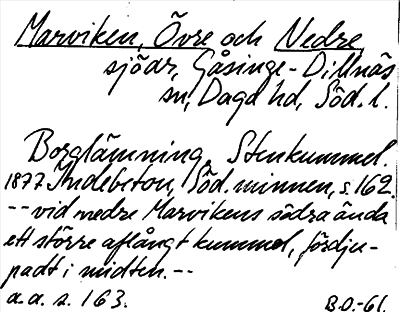 Marviken, Övre och Nedre
sjöar, Gåsinge-Dillnäs
sn, Daga hd, Söd. l.
Borglämning. Stenkummel.
1877 Indebetou, Söd. minnen, s. 162.
-- vid nedre Marvikens södra ända
ett större aflångt kummel, fördju-
padt i midten. --
a.a. s. 163.
B.O.-61.